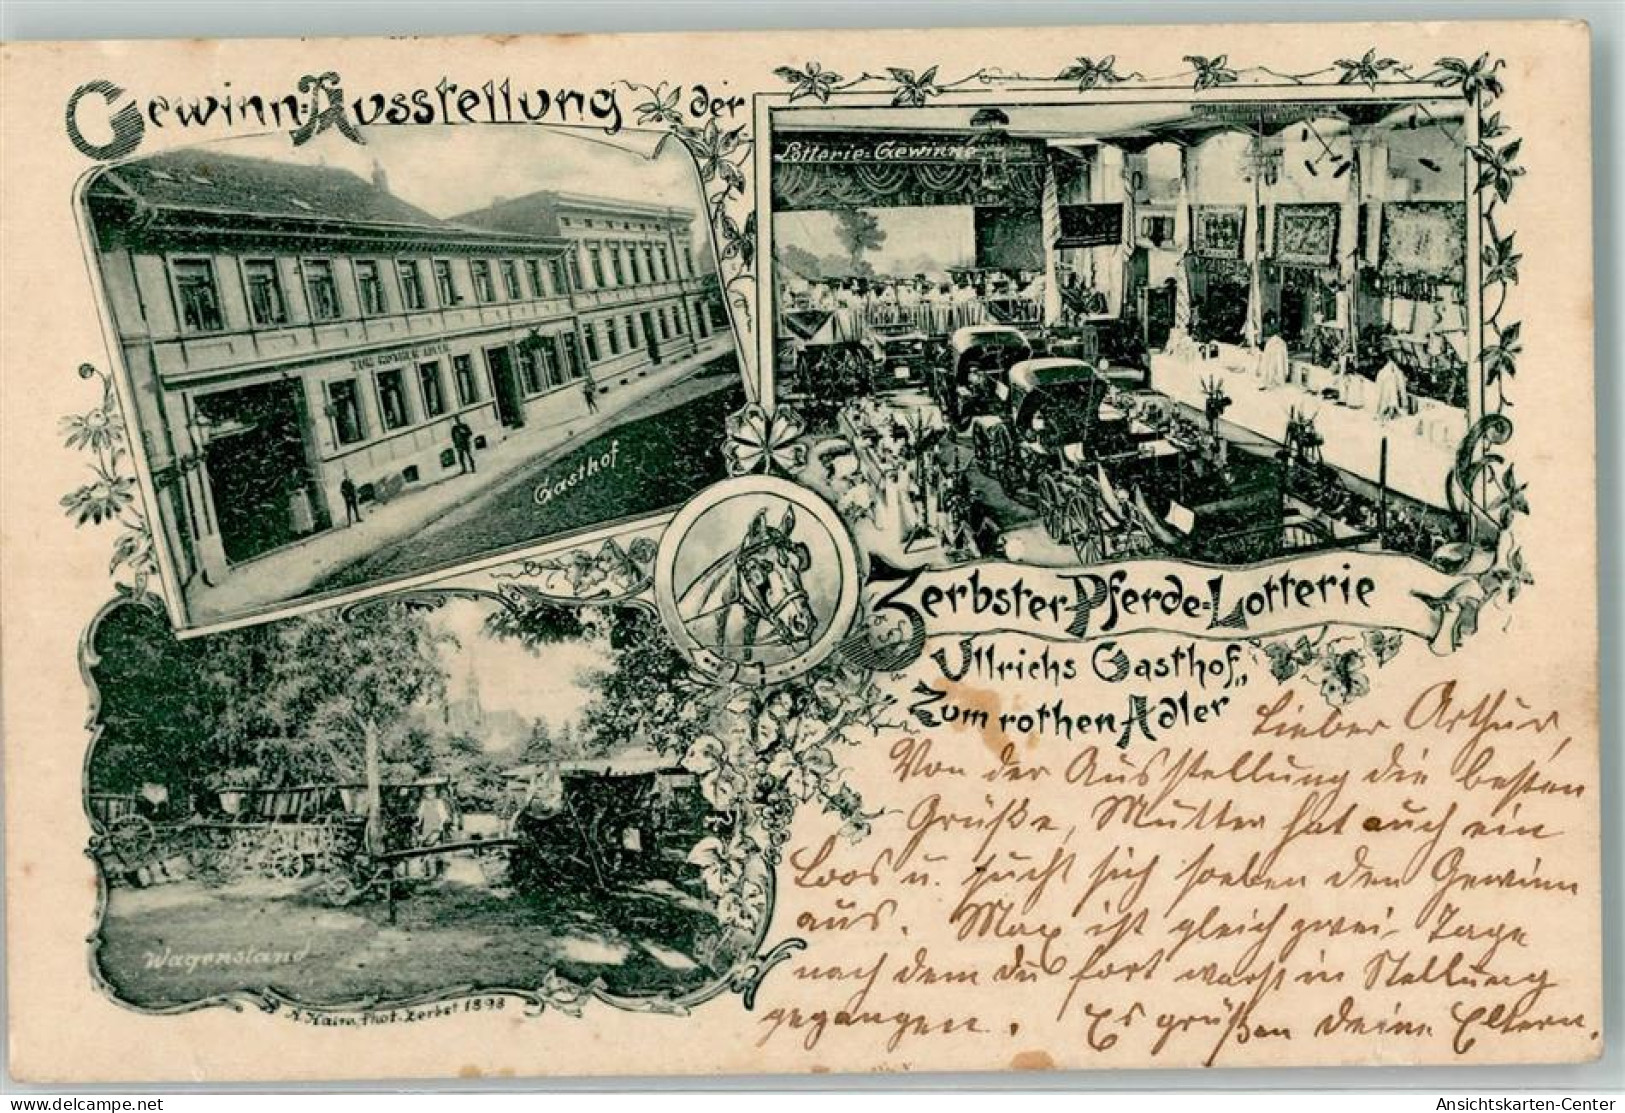 Gewinn-Ausstellung der
Lotterie-Gewinne
Gasthof
Zerbster-Pferde-Lotterie
Ullrichs Gasthof
„Zum rothen Adler
Wagenstand
phot. Zerbst 1898
Lieber Arthur,
Von der Ausstellung die besten
Grüße, Mutter hat auch ein
Loos u. sucht sich soeben den Gewinn
aus. Max ist gleich zwei Tage
nach dem du fort warst in Stellung
gegangen. Es grüßen Deine Eltern.
Ansichtskarten-Center
www.delcampe.net